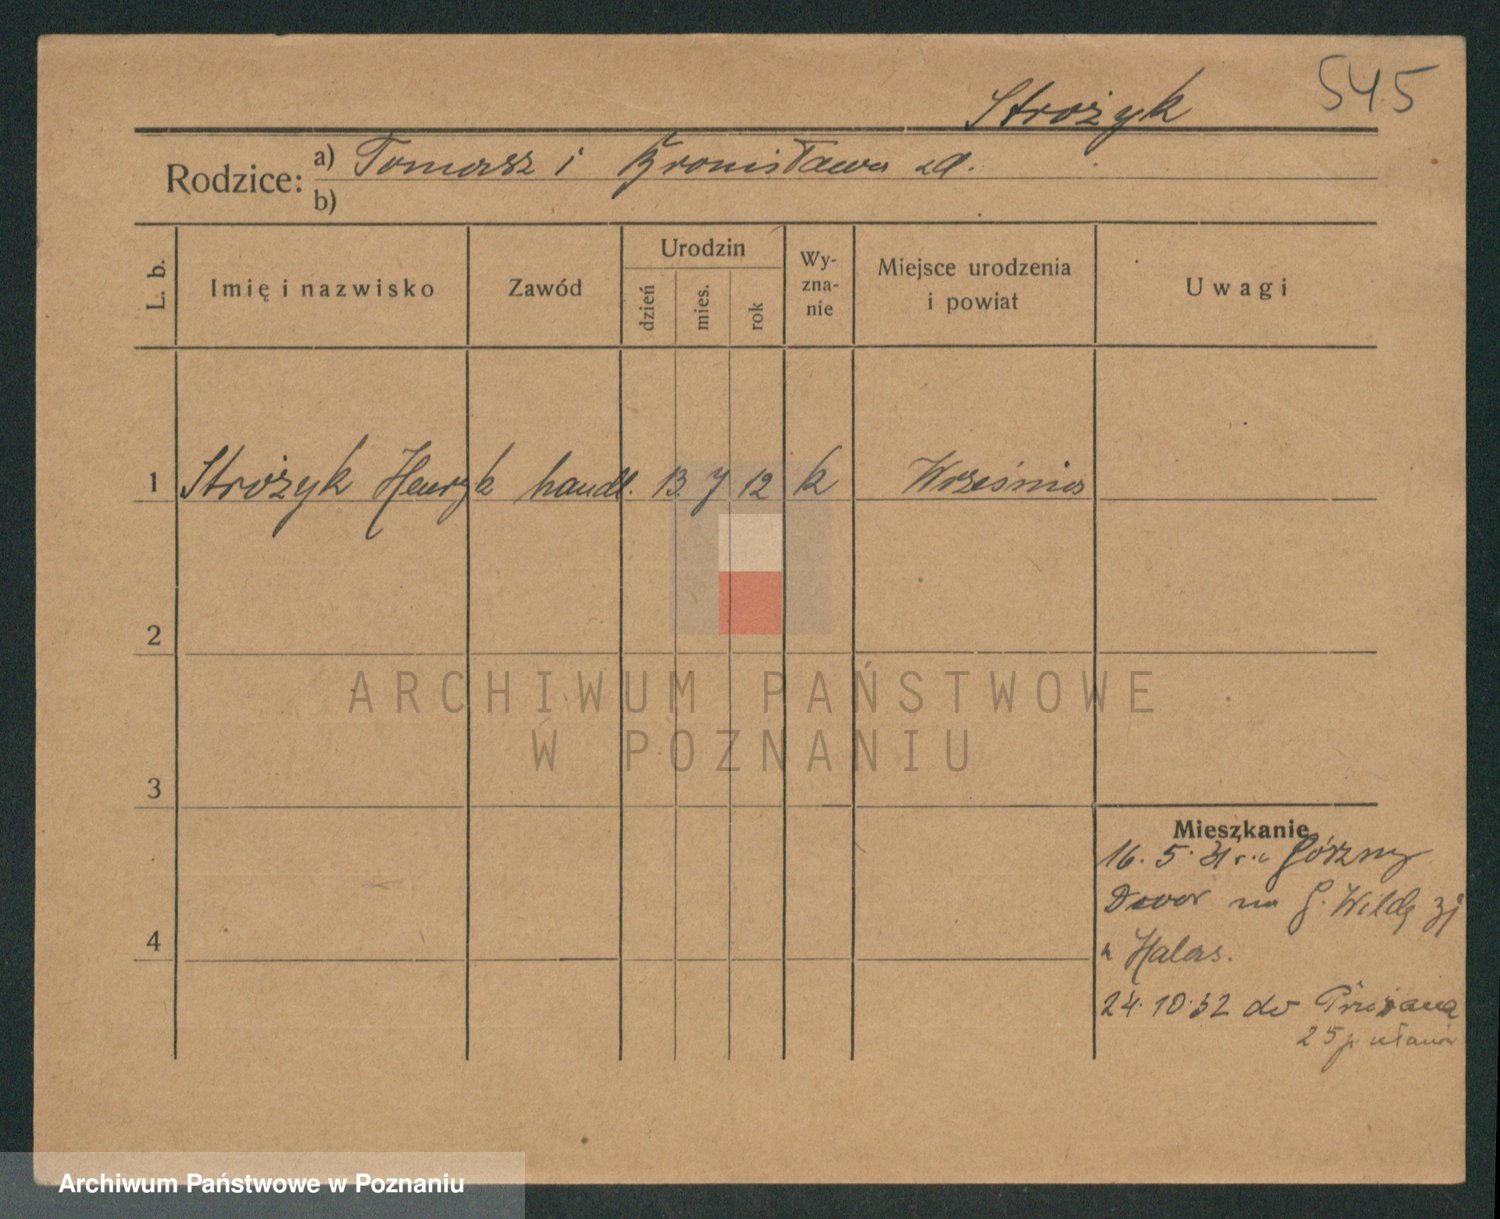 545
Strożyk
Rodzice: a) Tomasz i Bronisława zd.
b)
L. b.
Imię i nazwisko
Zawód
Urodzin
dzień
mies.
rok
Wy-
zna-
nie
Miejsce urodzenia
i powiat
Uwagi
1 Strożyk Henryk handl. 13 7 12 k Września
2
3
4
ARCHIWUM PAŃSTWOWE
W POZNANIU
Mieszkanie
16. 5. 31 Górzny
Dwor na G. Wildę 31
Halas.
24. 10. 32 do Prużana
25 p. ułanów
Archiwum Państwowe w Poznaniu